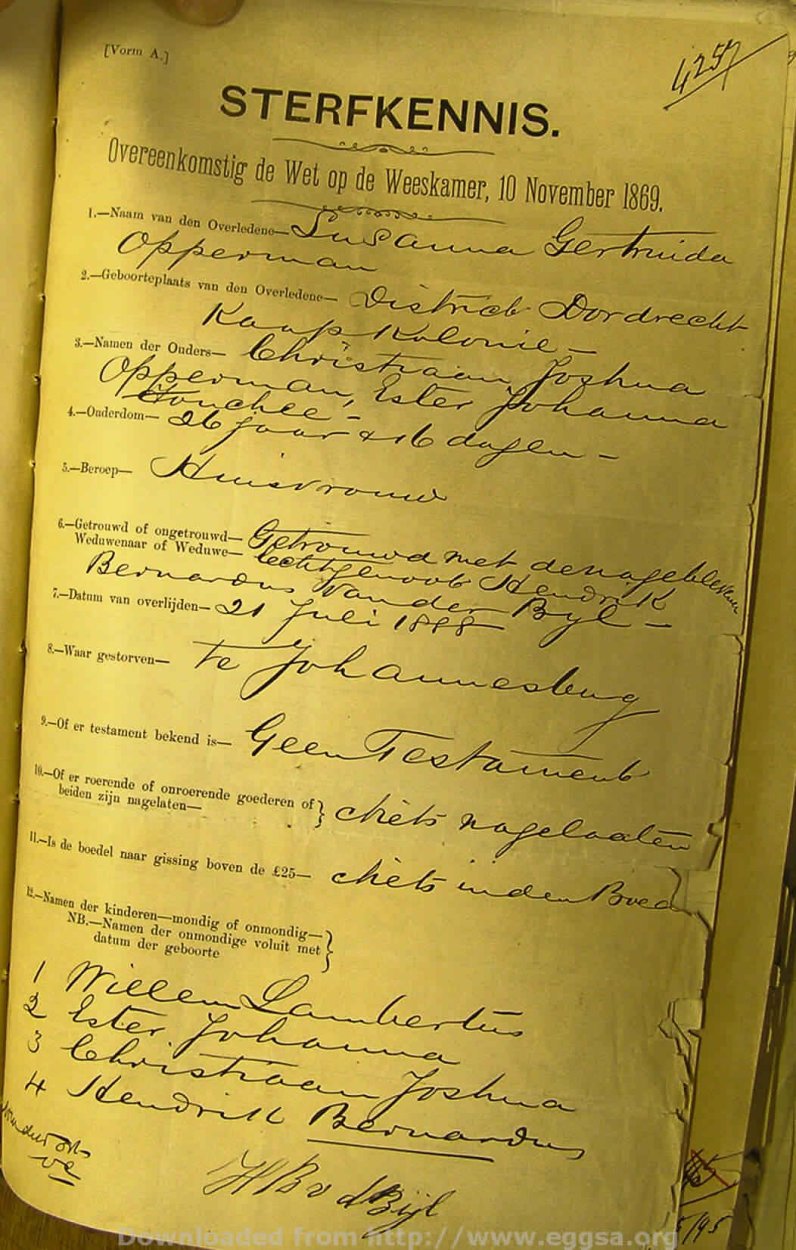 [Vorm A.]
4257
STERFKENNIS.
Overeenkomstig de Wet op de Weeskamer, 10 November 1869.
1.—Naam van den Overledene— Susanna Gertruida
Opperman
2.—Geboorteplaats van den Overledene— District Dordrecht
Kaap Kolonie –
3.—Namen der Ouders— Christiaan Joshua
Opperman, Ester Johanna
Fouchee –
4.—Ouderdom— 26 jaar & 16 dagen –
5.—Beroep— Huisvrouw
6.—Getrouwd of ongetrouwd—
Weduwenaar of Weduwe—
Getrouwd met den nageblevene
echtgenoot Hendrik
Bernardus Van der Byl –
7.—Datum van overlijden— 21 Juli 1888
8.—Waar gestorven— te Johannesburg
9.—Of er testament bekend is— Geen Testament
10.—Of er roerende of onroerende goederen of
beiden zijn nagelaten— } Niets nagelaaten
11.—Is de boedel naar gissing boven de £25— Niets in den Boedel
12.—Namen der kinderen—mondig of onmondig—
NB.—Namen der onmondige voluit met
datum der geboorte }
1 Willem Lambertus
2 Ester Johanna
3 Christiaan Joshua
4 Hendrik Bernardus
H B v d Bijl
5/95
Downloaded from http://www.eggsa.org